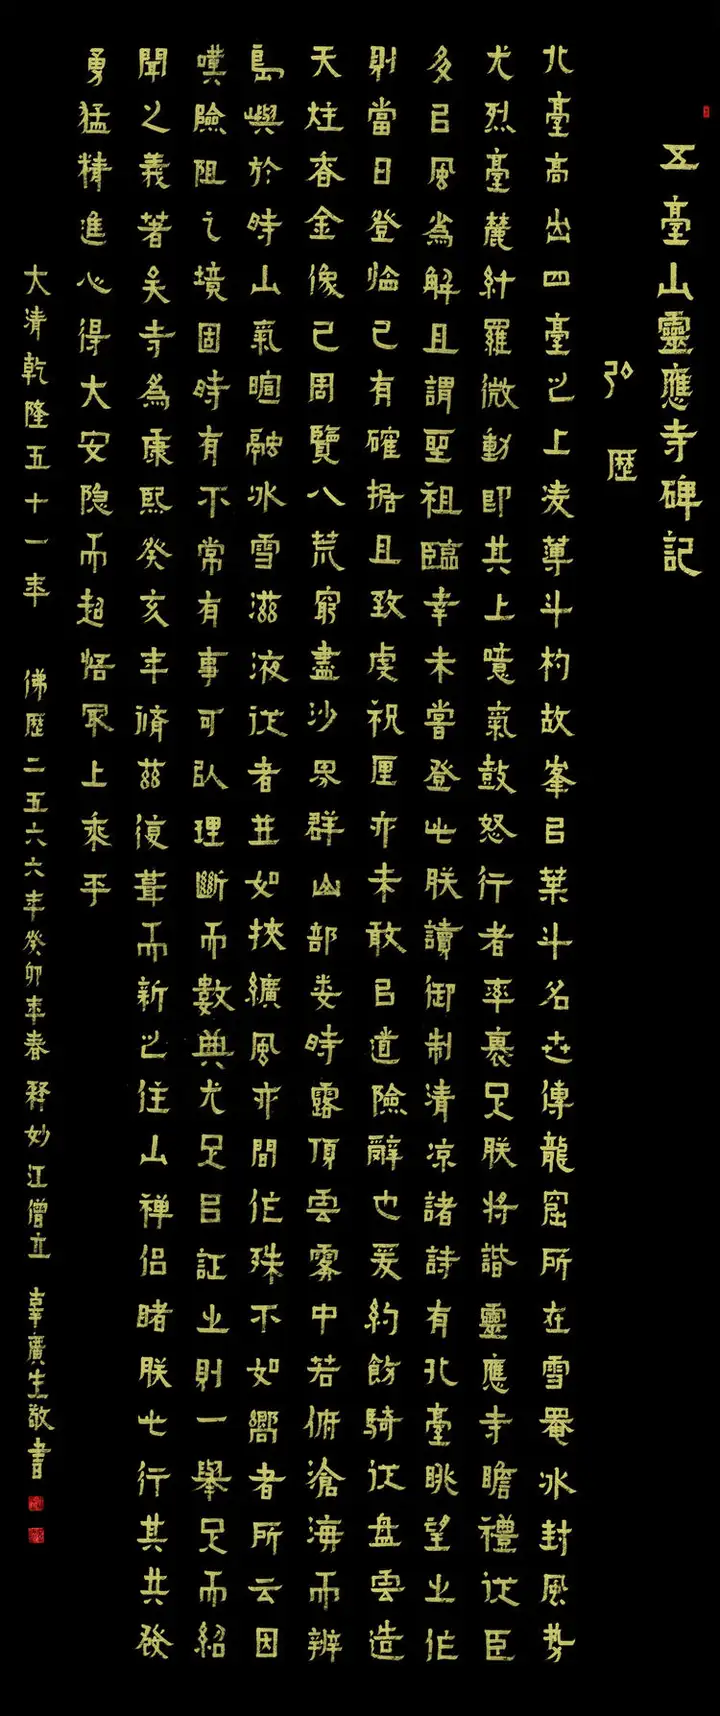 五臺山靈應寺碑記
弘歷
北臺高出四臺之上凌薄斗杓故峯㠯葉斗名世傳龍窟所在雪菴冰封風勢
尤烈臺麓紆羅微動即其上噫氣鼓怒行者率裹足朕將諧靈應寺瞻禮從臣
多㠯風為解且謂聖祖臨幸未嘗登此朕讀御制清涼諸詩有北臺眺望之作
則當日登臨已有確據且致虔祝厘亦未敢㠯道險辭也爰約飭騎從盤雲造
天炷香金像已周覽八荒窮盡沙界群山部婁時露頂雲霧中若俯滄海而辨
島嶼於時山氣暄融冰雪滋液從者並如挾纊風亦間作殊不如嚮者所云因
嘆險阻之境固時有不常有事可㠯理斷而數典尤足㠯証之則一舉足而紹
聞之義著矣寺為康熙癸亥年脩茲復葺而新之住山禅侣睹朕此行其共發
勇猛精進心得大安隐而超悟冣上乘乎
大清乾隆五十一年 佛歷二五六六年癸卯年春 釋妙江僧立 辜廣生敬書